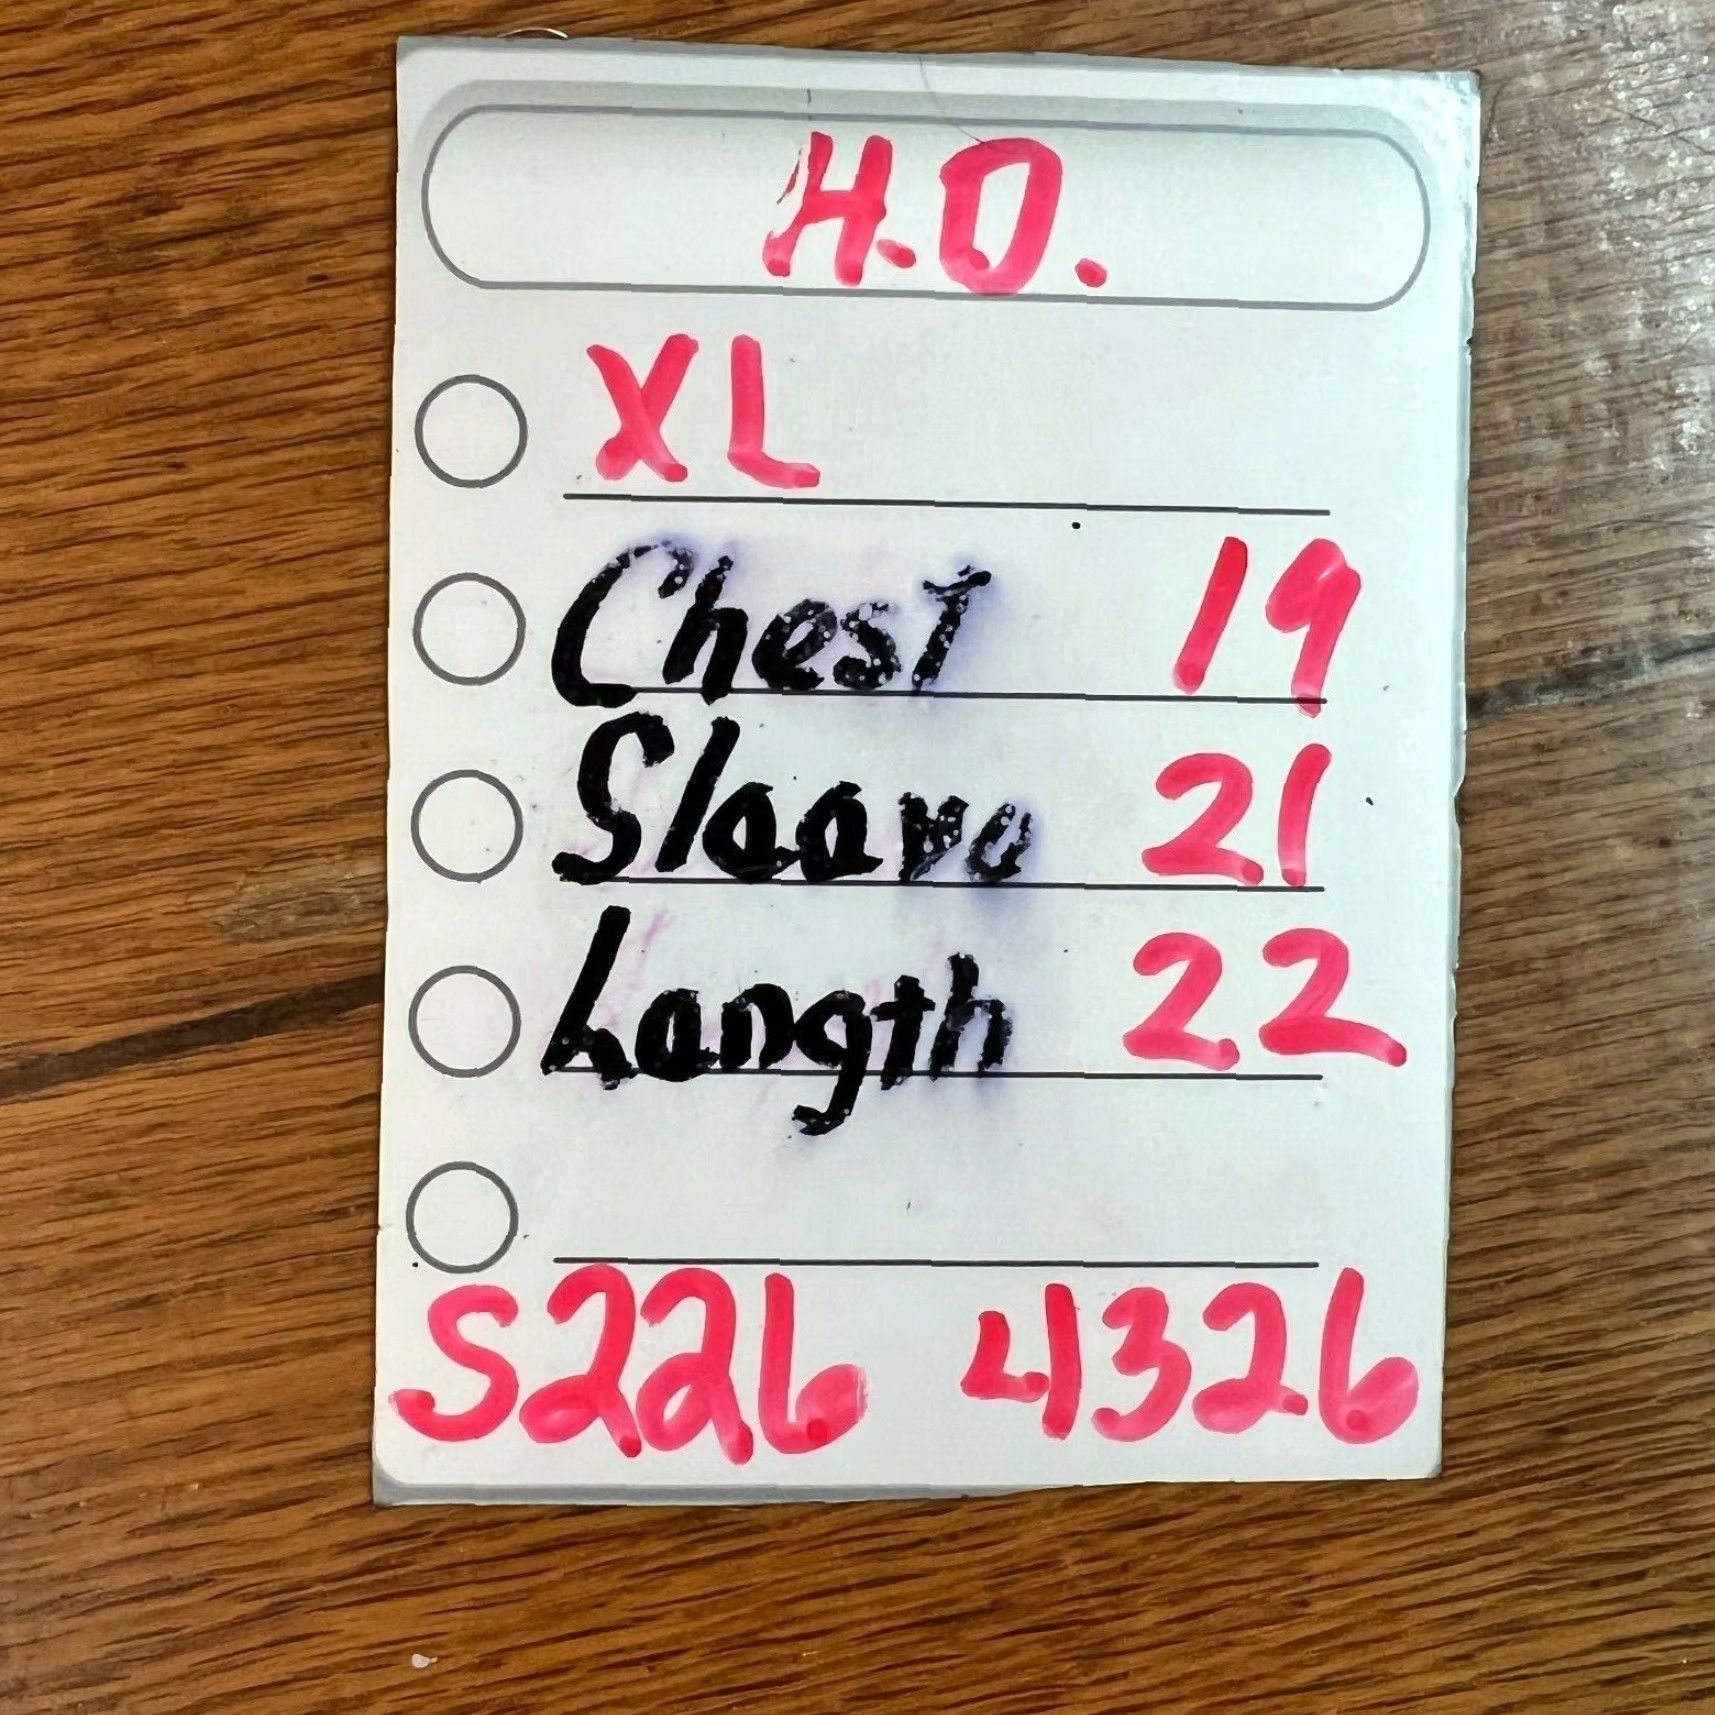 H.O.
XL
Chest 19
Sleeve 21
Length 22
S226 4326